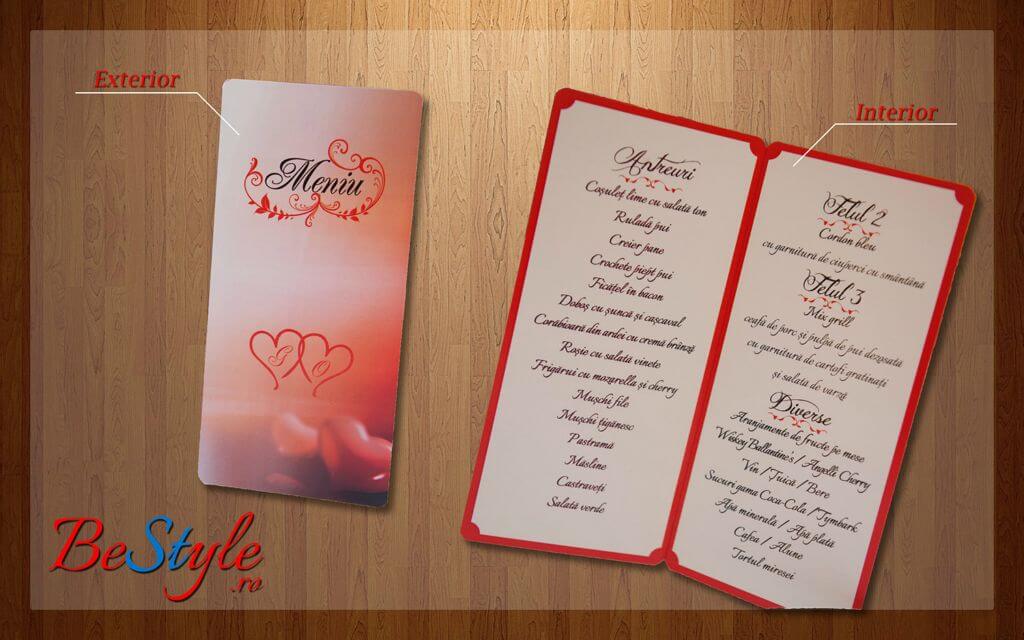 Exterior
Meniu
G O
BeStyle
.ro
Interior
Antreuri
Coșuleț lime cu salată ton
Ruladă pui
Creier pane
Crochete piept pui
Ficăței în bacon
Doboș cu șuncă și cașcaval
Corăbioară din ardei cu cremă brânză
Roșie cu salată vinete
Frigărui cu mozarella și cherry
Mușchi file
Mușchi țigănesc
Pastramă
Măsline
Castraveți
Salată verde
Felul 2
Cordon bleu
cu garnitură de ciuperci cu smântână
Felul 3
Mix grill
ceafă de porc și pulpă de pui dezosată
cu garnitură de cartofi gratinați
și salată de varză
Diverse
Aranjamente de fructe pe mese
Wiskey Ballantine's / Angelli Cherry
Vin / Țuică / Bere
Sucuri gama Coca-Cola / Tymbark
Apă minerală / Apă plată
Cafea / Alune
Tortul miresei